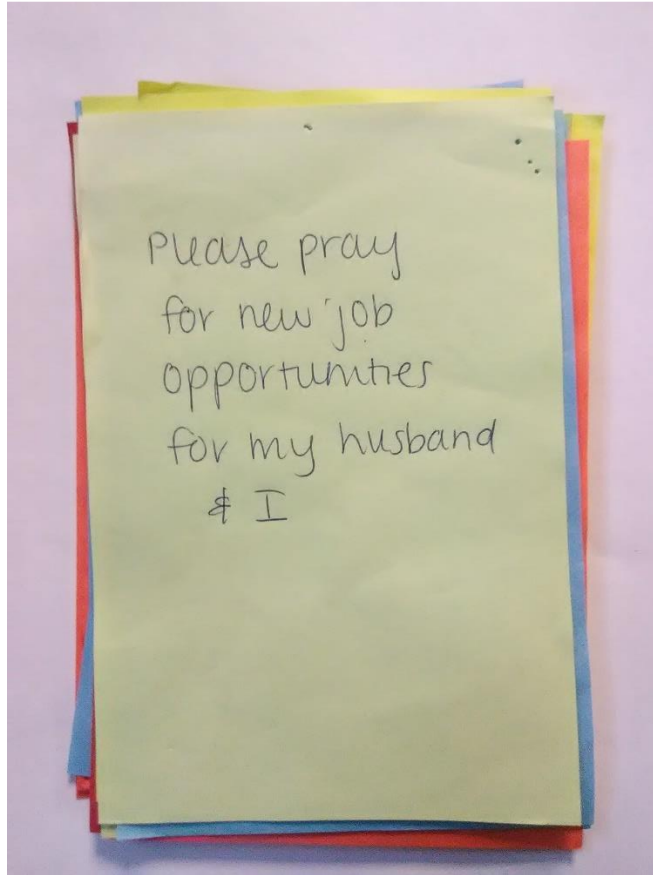 Please pray
for new job
opportunities
for my husband
& I